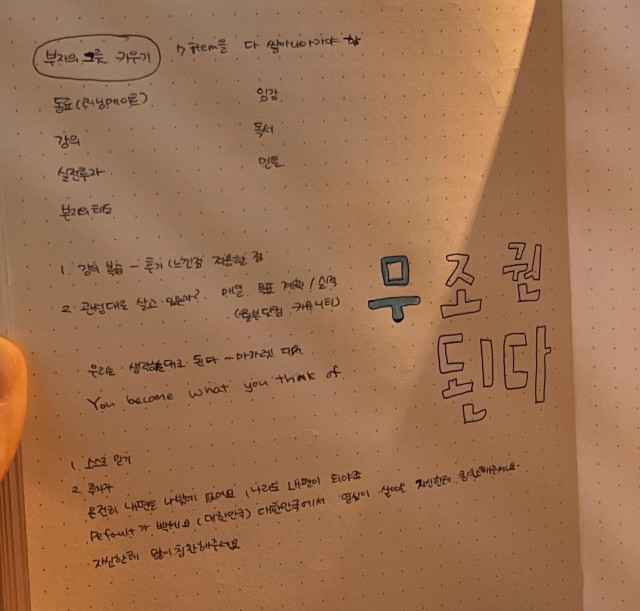 부자의 그릇 키우기 → item을 다 쌓아나아가야 함
동료 (러닝메이트) 임장
강의 독서
실전투자 멘토
부자의 태도
1. 강의 복습 - 후기 (느낀점 적용할 점
2. 관성대로 살고 있는가? 매일 목표 계획 / 실적
(월부닷컴 커뮤니티)
무조권
된다
우리는 생각하는대로 된다 - 마가렛 대처
You become what you think of
1. 스스로 믿기
2. 투자자
온전히 내편은 나밖에 없어요 (나라도 내편이 되야죠
Default가 빡세요 (대한민국) 대한민국에서 열심히 살아온 자신한테 칭찬해주세요.
자신한테 많이 칭찬해주세요